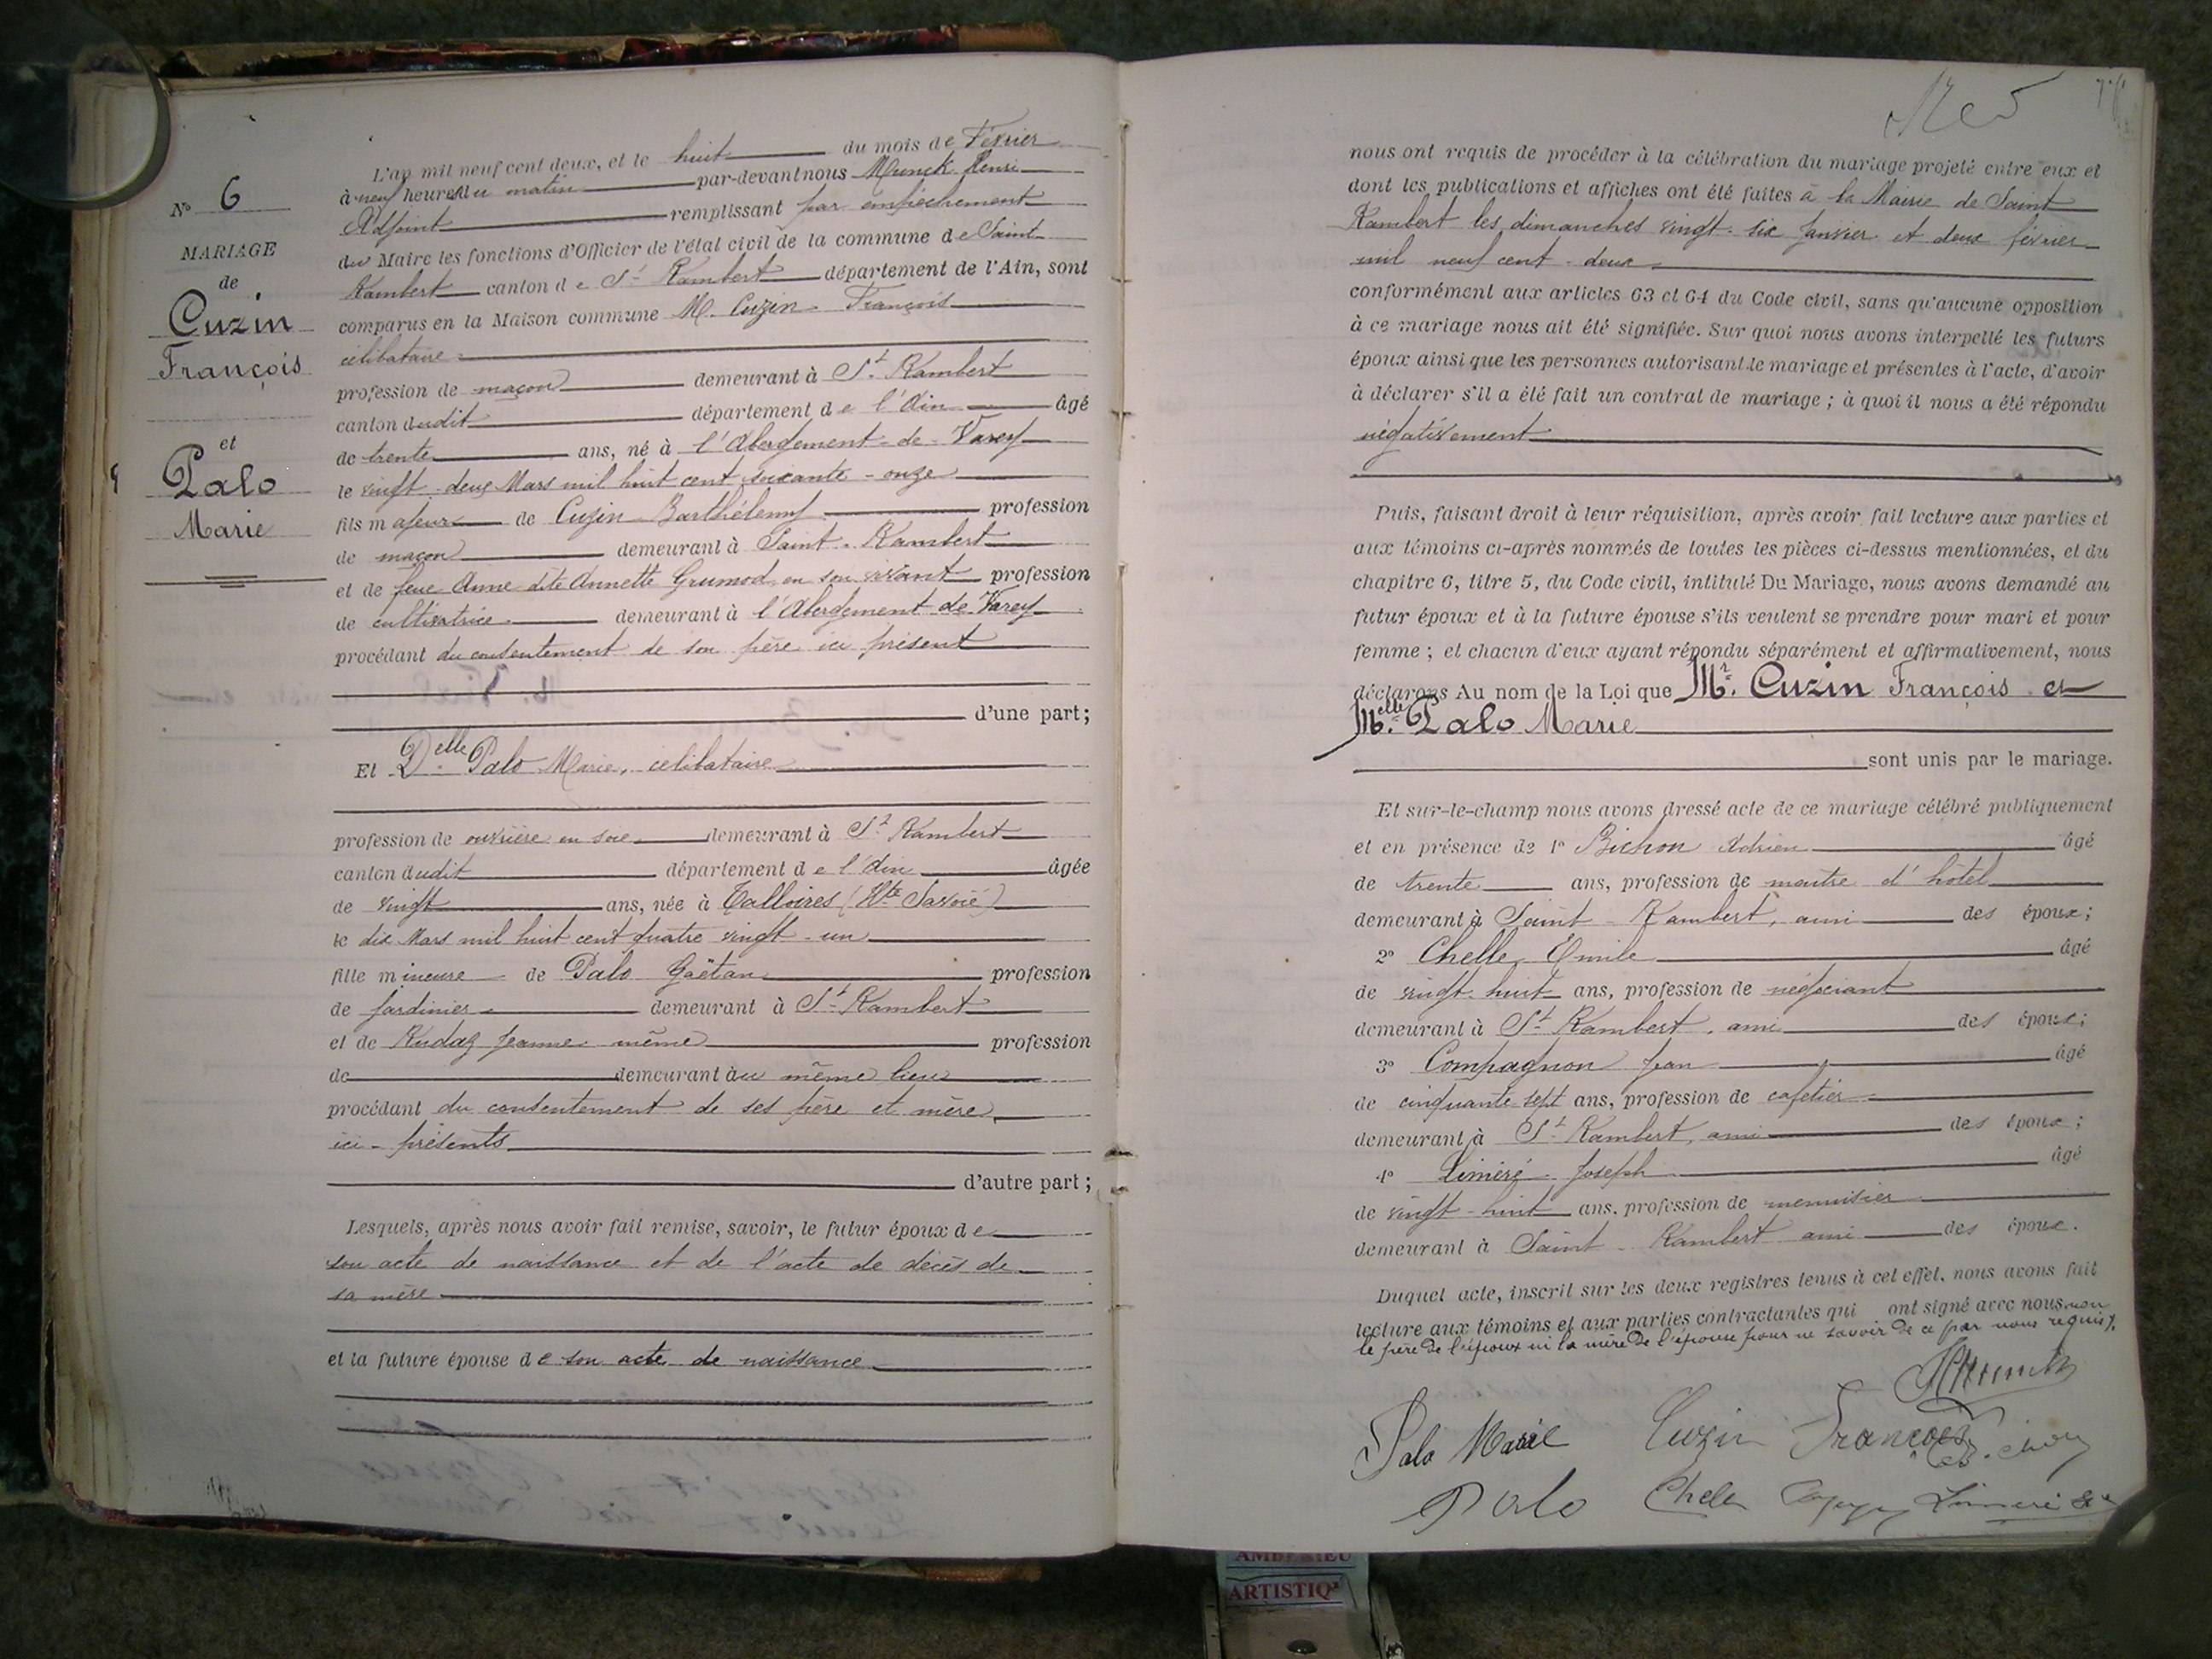 Nº 6
MARIAGE
de
Cuzin
François
et
Palo
Marie
L'an mil neuf cent deux, et le huit du mois de Février
à neuf heures du matin par-devant nous Munck Henri
Adjoint remplissant par empêchement
du Maire les fonctions d'Officier de l'état civil de la commune de Saint
Rambert canton de St Rambert département de l'Ain, sont
comparus en la Maison commune M. Cuzin François
célibataire
profession de maçon demeurant à St Rambert
canton dudit département de l'Ain âgé
de trente ans, né à l'Abergement-de-Varey
le vingt-deux Mars mil huit cent soixante-onze
fils majeur de Cuzin Barthélemy profession
de maçon demeurant à Saint-Rambert
et de feue Anne dite Annette Grumod en son vivant profession
de cultivatrice demeurant à l'Abergement de Varey
procédant du consentement de son père ici présent
d'une part;
Et Delle Palo Marie, célibataire
profession de ouvrière en soie demeurant à St Rambert
canton dudit département de l'Ain âgée
de vingt ans, née à Talloires (Hte Savoie)
le dix Mars mil huit cent quatre vingt-un
fille mineure de Palo Gaëtan profession
de jardinier demeurant à St Rambert
et de Rudaz Jeanne même profession
de demeurant au même lieu
procédant du consentement de ses père et mère
ici-présents
d'autre part;
Lesquels, après nous avoir fait remise, savoir, le futur époux de
son acte de naissance et de l'acte de décès de
sa mère
et la future épouse de son acte de naissance
nous ont requis de procéder à la célébration du mariage projeté entre eux et
dont les publications et affiches ont été faites à la Mairie de Saint
Rambert les dimanches vingt-six Janvier et deux février
mil neuf cent-deux
conformément aux articles 63 et 64 du Code civil, sans qu'aucune opposition
à ce mariage nous ait été signifiée. Sur quoi nous avons interpellé les futurs
époux ainsi que les personnes autorisant le mariage et présentes à l'acte, d'avoir
à déclarer s'il a été fait un contrat de mariage; à quoi il nous a été répondu
négativement
Puis, faisant droit à leur réquisition, après avoir fait lecture aux parties et
aux témoins ci-après nommés de toutes les pièces ci-dessus mentionnées, et du
chapitre 6, titre 5, du Code civil, intitulé Du Mariage, nous avons demandé au
futur époux et à la future épouse s'ils veulent se prendre pour mari et pour
femme; et chacun d'eux ayant répondu séparément et affirmativement, nous
déclarons Au nom de la Loi que Mr. Cuzin François et
Melle Palo Marie
sont unis par le mariage.
Et sur-le-champ nous avons dressé acte de ce mariage célébré publiquement
et en présence de 1º Bichon Adrien âgé
de trente ans, profession de maître d'hôtel
demeurant à Saint-Rambert, ami des époux;
2º Chelle Émile âgé
de vingt-huit ans, profession de négociant
demeurant à St Rambert, ami des époux;
3º Compagnon Jean âgé
de cinquante sept ans, profession de cafetier
demeurant à St Rambert, ami des époux;
4º Liméré Joseph âgé
de vingt-huit ans, profession de menuisier
demeurant à Saint-Rambert ami des époux.
Duquel acte, inscrit sur les deux registres tenus à cet effet, nous avons fait
lecture aux témoins et aux parties contractantes qui ont signé avec nous, non
le père de l'époux ni la mère de l'épouse pour ne savoir de ce par nous requis.
HMunck
Palo Marie Cuzin François
Palo Chelle Liméré
ARTISTIQ